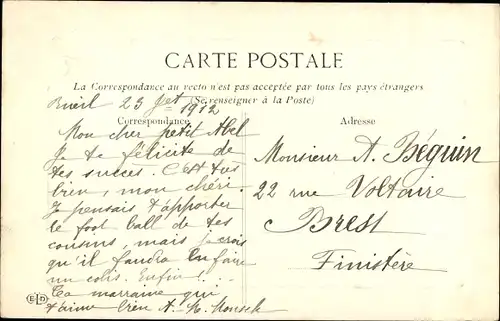 CARTE POSTALE
La Correspondance au recto n'est pas acceptée par tous les pays étrangers
(Se renseigner à la Poste)
Rueil 23 Jet 1912
Correspondance
Mon cher petit Abel
Je te félicite de
tes succès. C'est très
bien, mon chéri.
Je pensais t'apporter
le foot ball de tes
cousins, mais je crois
qu'il faudra en faire
un colis. Enfin! ...
Ta marraine qui
t'aime bien A. M.
ELD
Adresse
Monsieur A. Béguin
22 rue Voltaire
Brest
Finistère